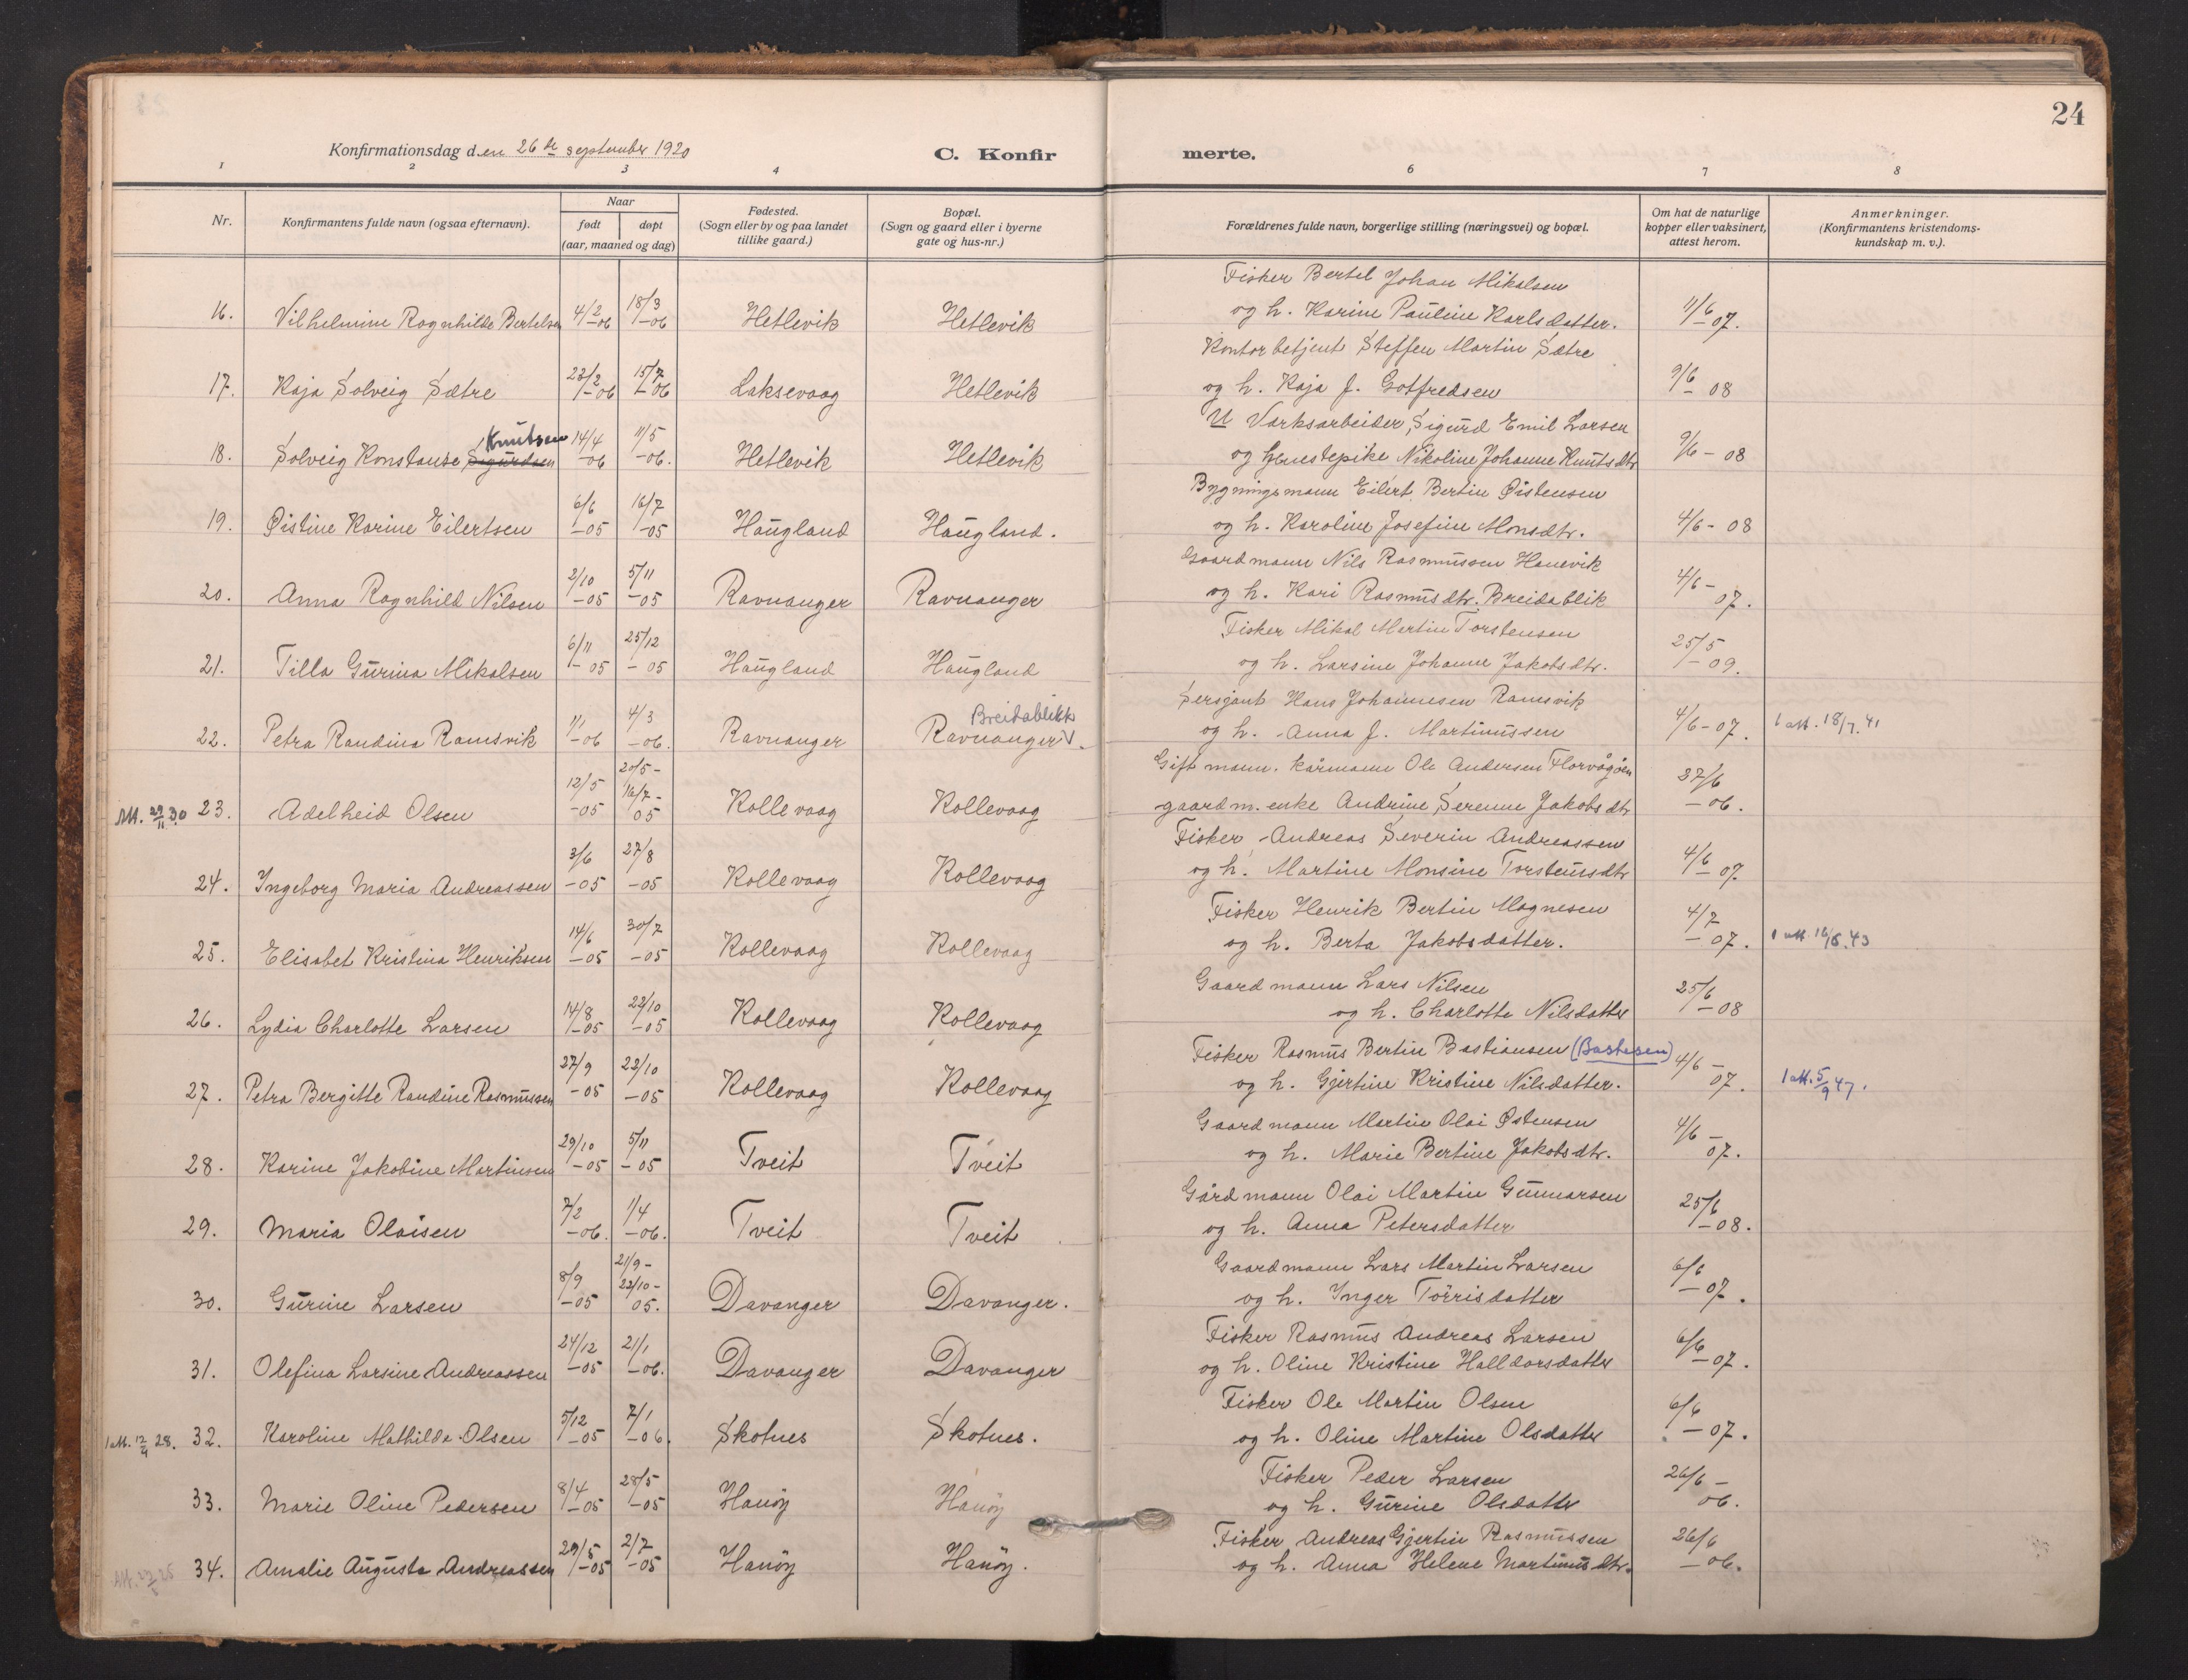 24
Konfirmationsdag den 26de september 1920
C. Konfir
merte.
1 2 3 4 6 7 8
Nr.
Konfirmantens fulde navn (ogsaa efternavn).
Naar
født
døpt
(aar, maaned og dag)
Fødested.
(Sogn eller by og paa landet
tillike gaard.)
Bopæl.
(Sogn og gaard eller i byerne
gate og hus-nr.)
Forældrenes fulde navn, borgerlige stilling (næringsvei) og bopæl.
Om hat de naturlige
kopper eller vaksinert,
attest herom.
Anmerkninger.
(Konfirmantens kristendoms-
kundskap m. v.).
Fisker Bertel Johan Mikalsen
16. Vilhelmine Ragnhilde Bertelsen 4/2 -06 18/3 -06 Hetlevik Hetlevik og h. Karine Pauline Karlsdatter. 11/6 07.
Kontorbetjent Steffen Martin Sætre
17. Kaja Solveig Sætre 23/2 -06 15/7 -06 Laksevaag Hetlevik og h. Kaja J. Gotfredsen 9/6 08
Knutsen
U Værksarbeider, Sigurd Emil Larsen
18. Solveig Konstanse Sigurdsen 14/4 -06 11/5 -06. Hetlevik Hetlevik og tjenestepike Nikoline Johanne Knutsdtr 9/6 - 08
Bygningsmann Eilert Bertin Øistensen
19. Øistine Karine Eilertsen 6/6 -05 16/7 -05 Haugland Haugland. og h. Karoline Josefine Monsdtr. 4/6 - 08
Gaardmann Nils Rasmussen Hanevik
20. Anna Ragnhild Nilsen 2/10 -05 5/11 -05 Ravnanger Ravnanger og h. Kari Rasmusdtr. Breidablik 4/6 - 07.
Fisker Mikal Martin Torstensen
21. Tilla Gurina Mikalsen 6/11 -05 25/12 -05 Haugland Haugland og h. Larsine Johanne Jakobsdtr. 25/5 -09.
Breidablikk
Sersjant Hans Johannesen Ramsvik
22. Petra Randina Ramsvik 1/1 -06 4/3 -06. Ravnanger Ravnanger V. og h. Anna J. Martinussen 4/6 - 07. 1 att. 18/7. 41
Gift mann. kårmann Ole Andersen Florvågøen
Att. 29/11 30 23. Adelheid Olsen 12/5 -05 20/5 - 16/7 - 05 Kollevaag Kollevaag gaardm. enke Andrine Serenne Jakobsdtr 27/6 -06.
Fisker Andreas Severin Andreassen
24. Ingeborg Maria Andreassen 3/6 -05 27/8 -05 Kollevaag Kollevaag og h. Martine Monsine Torsteinsdtr 4/6 - 07.
Fisker Henrik Bertin Magnesen
25. Elisabet Kristina Henriksen 14/6 -05 30/7 -05 Kollevaag Kollevaag og h. Berta Jakobsdatter. 4/7 -07. 1 att. 16/8. 43
Gaardmann Lars Nilsen
26. Lydia Charlotte Larsen 14/8 -05 22/10 -05 Kollevaag Kollevaag og h. Charlotte Nilsdatter 25/6 -08
Fisker Rasmus Bertin Bastiansen (Bastesen)
27. Petra Bergitte Randine Rasmussen 27/9 -05 22/10 -05 Kollevaag Kollevaag og h. Gjertine Kristine Nilsdatter. 4/6 - 07. 1 att. 5/9 47.
Gaardmann Martin Olai Østensen
28. Karine Jakobine Martinsen 29/10 -05 5/11 -05 Tveit Tveit og h. Marie Bertine Jakobsdtr. 4/6 - 07.
Gårdmann Olai Martin Gunnarsen
29. Maria Olaisen 7/2 -06. 1/4 -06. Tveit Tveit og h. Anna Petersdatter 25/6 -08.
Gaardmann Lars Martin Larsen
30. Gurine Larsen 8/9 -05 21/9 - 22/10 - 05. Davanger Davanger. og h. Inger Tørrisdatter 6/6 -07.
Fisker Rasmus Andreas Larsen
31. Olefina Larsine Andreassen 24/12 -05 21/1 -06. Davanger Davanger og h. Oline Kristine Halldorsdatter 6/6 -07.
Fisker Ole Martin Olsen
1 att. 12/4 28. 32. Karoline Mathilde Olsen 5/12 -05 7/1 -06. Skotnes Skotnes. og h. Oline Martine Olsdatter 6/6 -07.
Fisker Peder Larsen
33. Marie Oline Pedersen 8/4 -05 28/5 -05 Hanøy Hanøy og h. Gurine Olsdatter 26/6 - 06.
Fisker Andreas Gjertin Rasmussen
34. Amalie Augusta Andreassen 29/5 -05 2/7 -05 Hanøy Hanøy. og h. Anna Helene Martinusdtr. 26/6 -06.